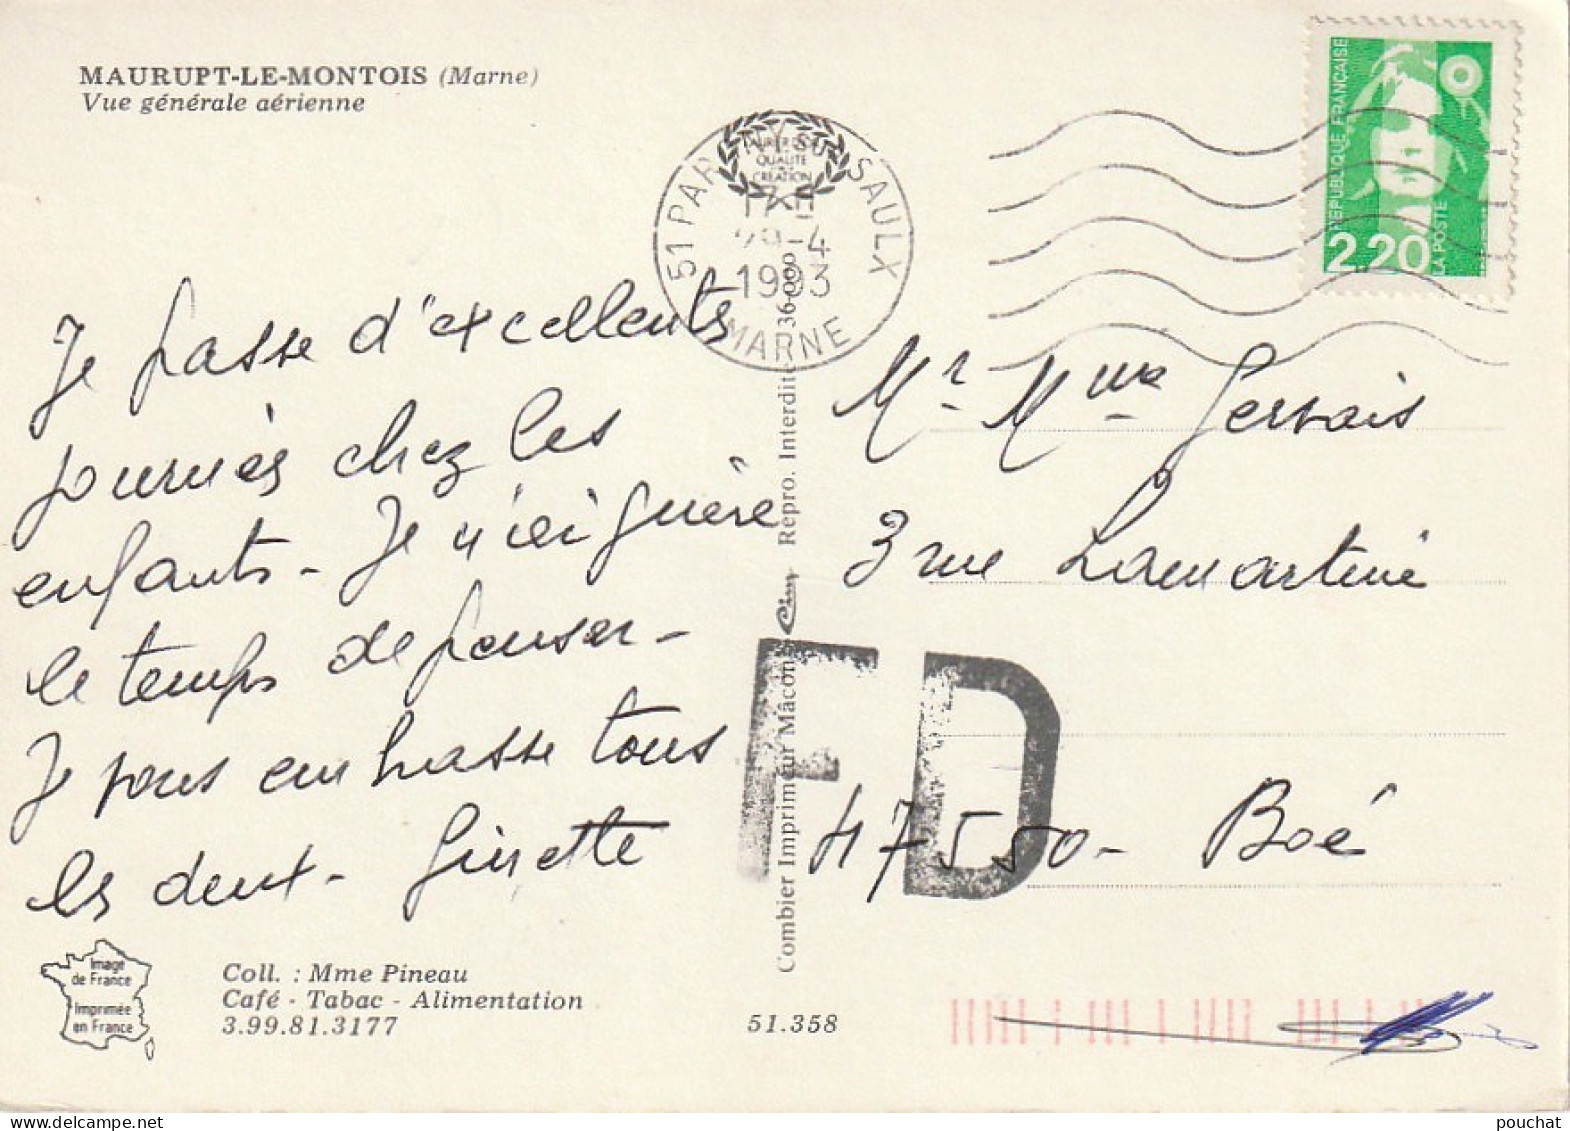 MAURUPT-LE-MONTOIS (Marne)
Vue générale aérienne
51 PARGNY SUR SAULX
QUALITE
CREATION
17 H
29-4
1993
MARNE
RÉPUBLIQUE FRANÇAISE
2,20
LA POSTE
Je passe d'excellents
journées chez les
enfants - Je n'ai guère
le temps de penser -
Je vous embrasse tous
les deux - Ginette
Mr Mme Gervais
3 rue Lamartine
47550 - Boé
FD
Combier Imprimeur Mâcon Cim Repro. Interdite
Image
de France
Imprimée
en France
Coll. : Mme Pineau
Café - Tabac - Alimentation
3.99.81.3177
51.358
pouchat